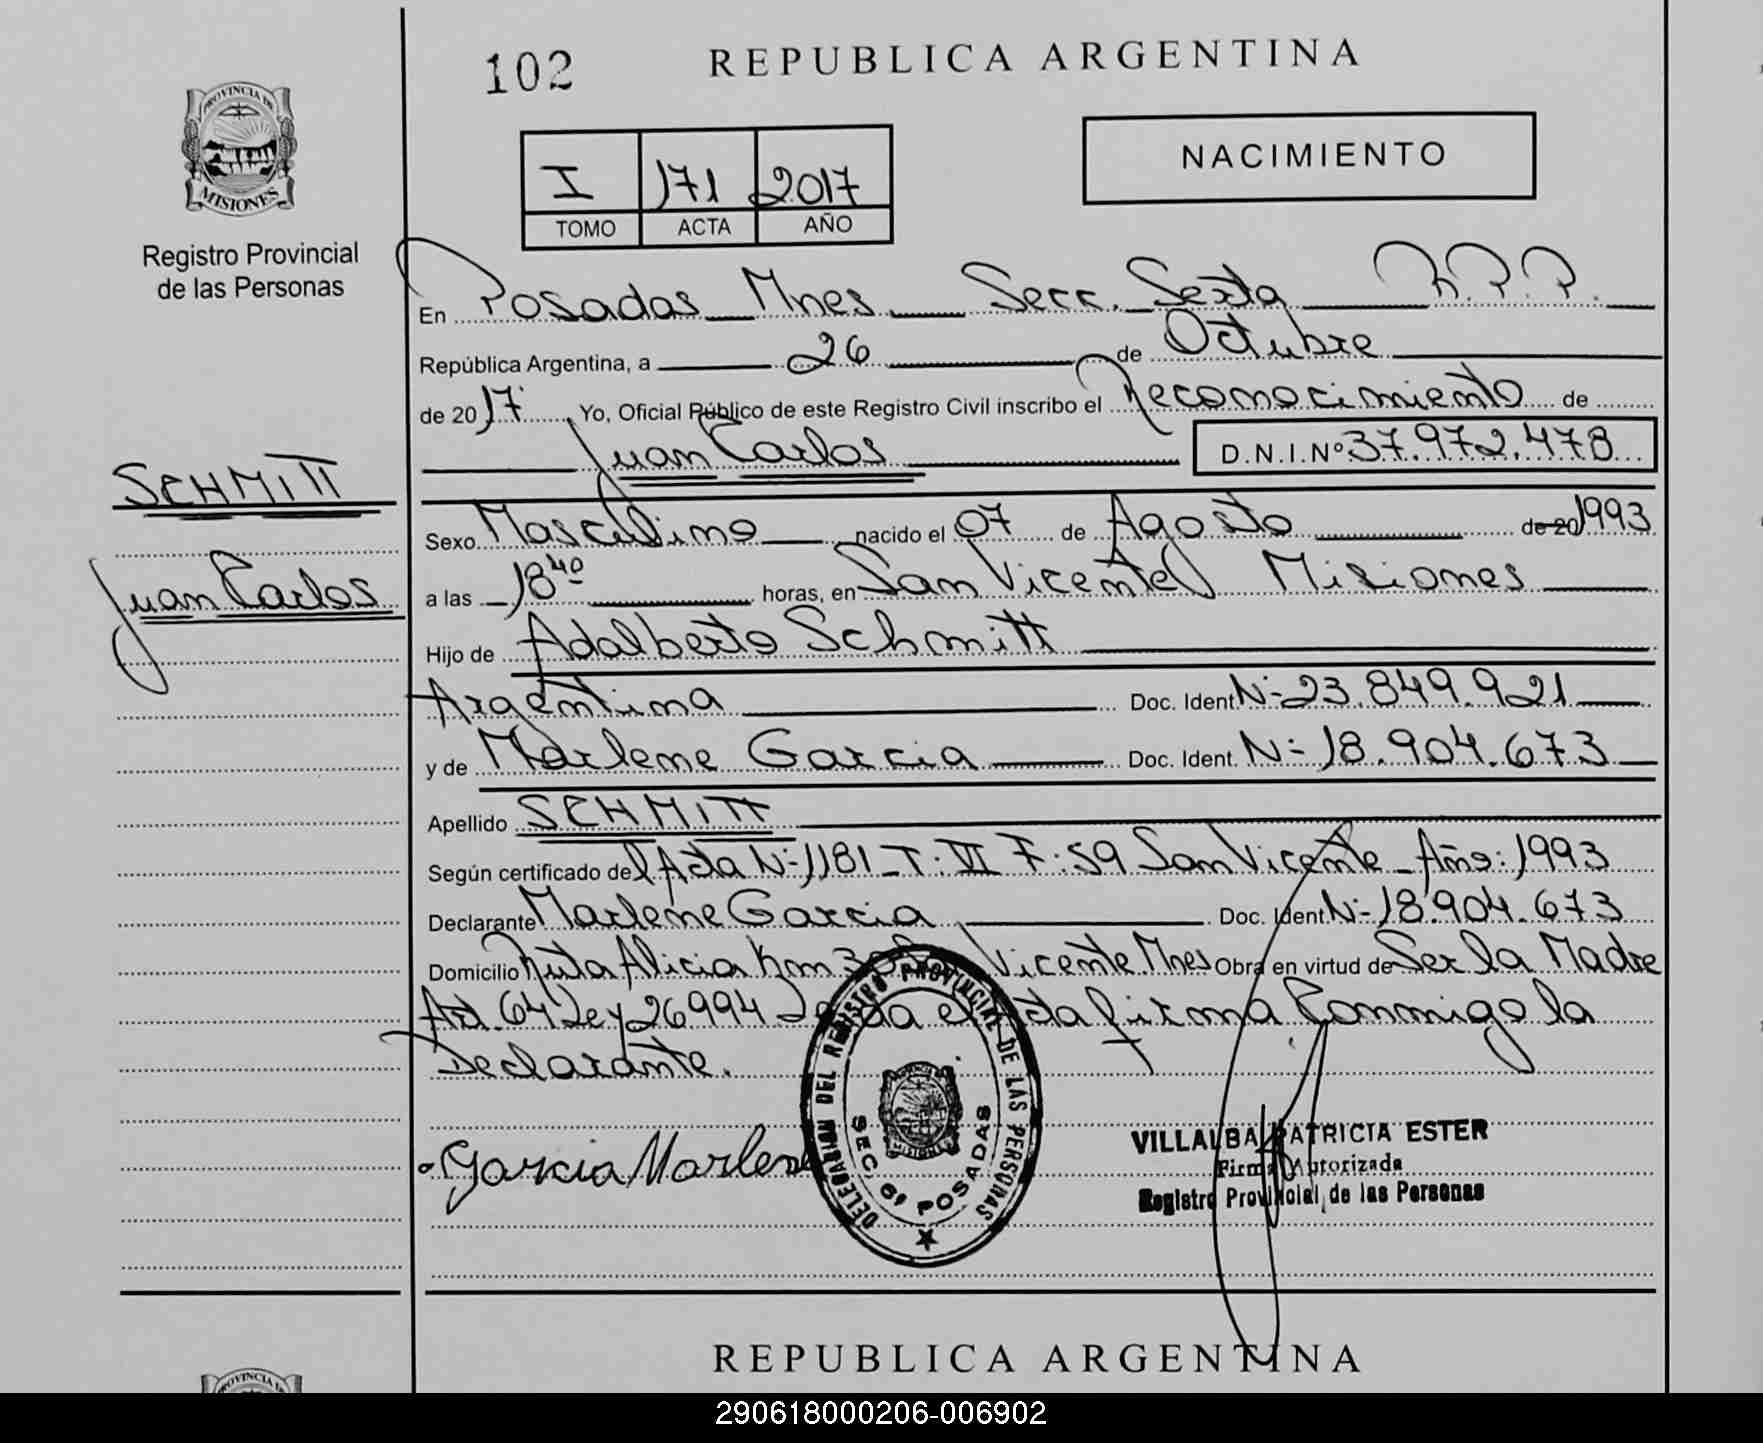 102
REPUBLICA ARGENTINA
PROVINCIA DE
MISIONES
Registro Provincial
de las Personas
I 171 2017
TOMO ACTA AÑO
NACIMIENTO
En Posadas Mnes Secc. Sexta R.P.P.
República Argentina, a 26 de Octubre
de 2017 , Yo, Oficial Público de este Registro Civil inscribo el Reconocimiento de
Juan Carlos D.N.I.Nº 37.972.478
SCHMITT
Juan Carlos
Sexo Masculino nacido el 07 de Agosto de 20 1993
a las 18 40 horas, en San Vicente Misiones
Hijo de Adalberto Schmitt
Argentina Doc. Ident. Nº 23.849.921
y de Marlene Garcia Doc. Ident. Nº 18.904.673
Apellido SCHMITT
Según certificado del Acta Nº 1181 T: VI F: 59 San Vicente Año: 1993
Declarante Marlene Garcia Doc. Ident. Nº 18.904.673
Domicilio Ruta Alicia Km Vicente Mnes Obra en virtud de Ser la Madre
Art. 64 Ley 26994 firma Conmigo la
Declarante.
Garcia Marlene
DELEGACION DEL REGISTRO PROVINCIAL DE LAS PERSONAS
SEC. 6ª POSADAS
VILLALBA PATRICIA ESTER
Firma Autorizada
Registro Provincial de las Personas
REPUBLICA ARGENTINA
PROVINCIA DE
290618000206-006902